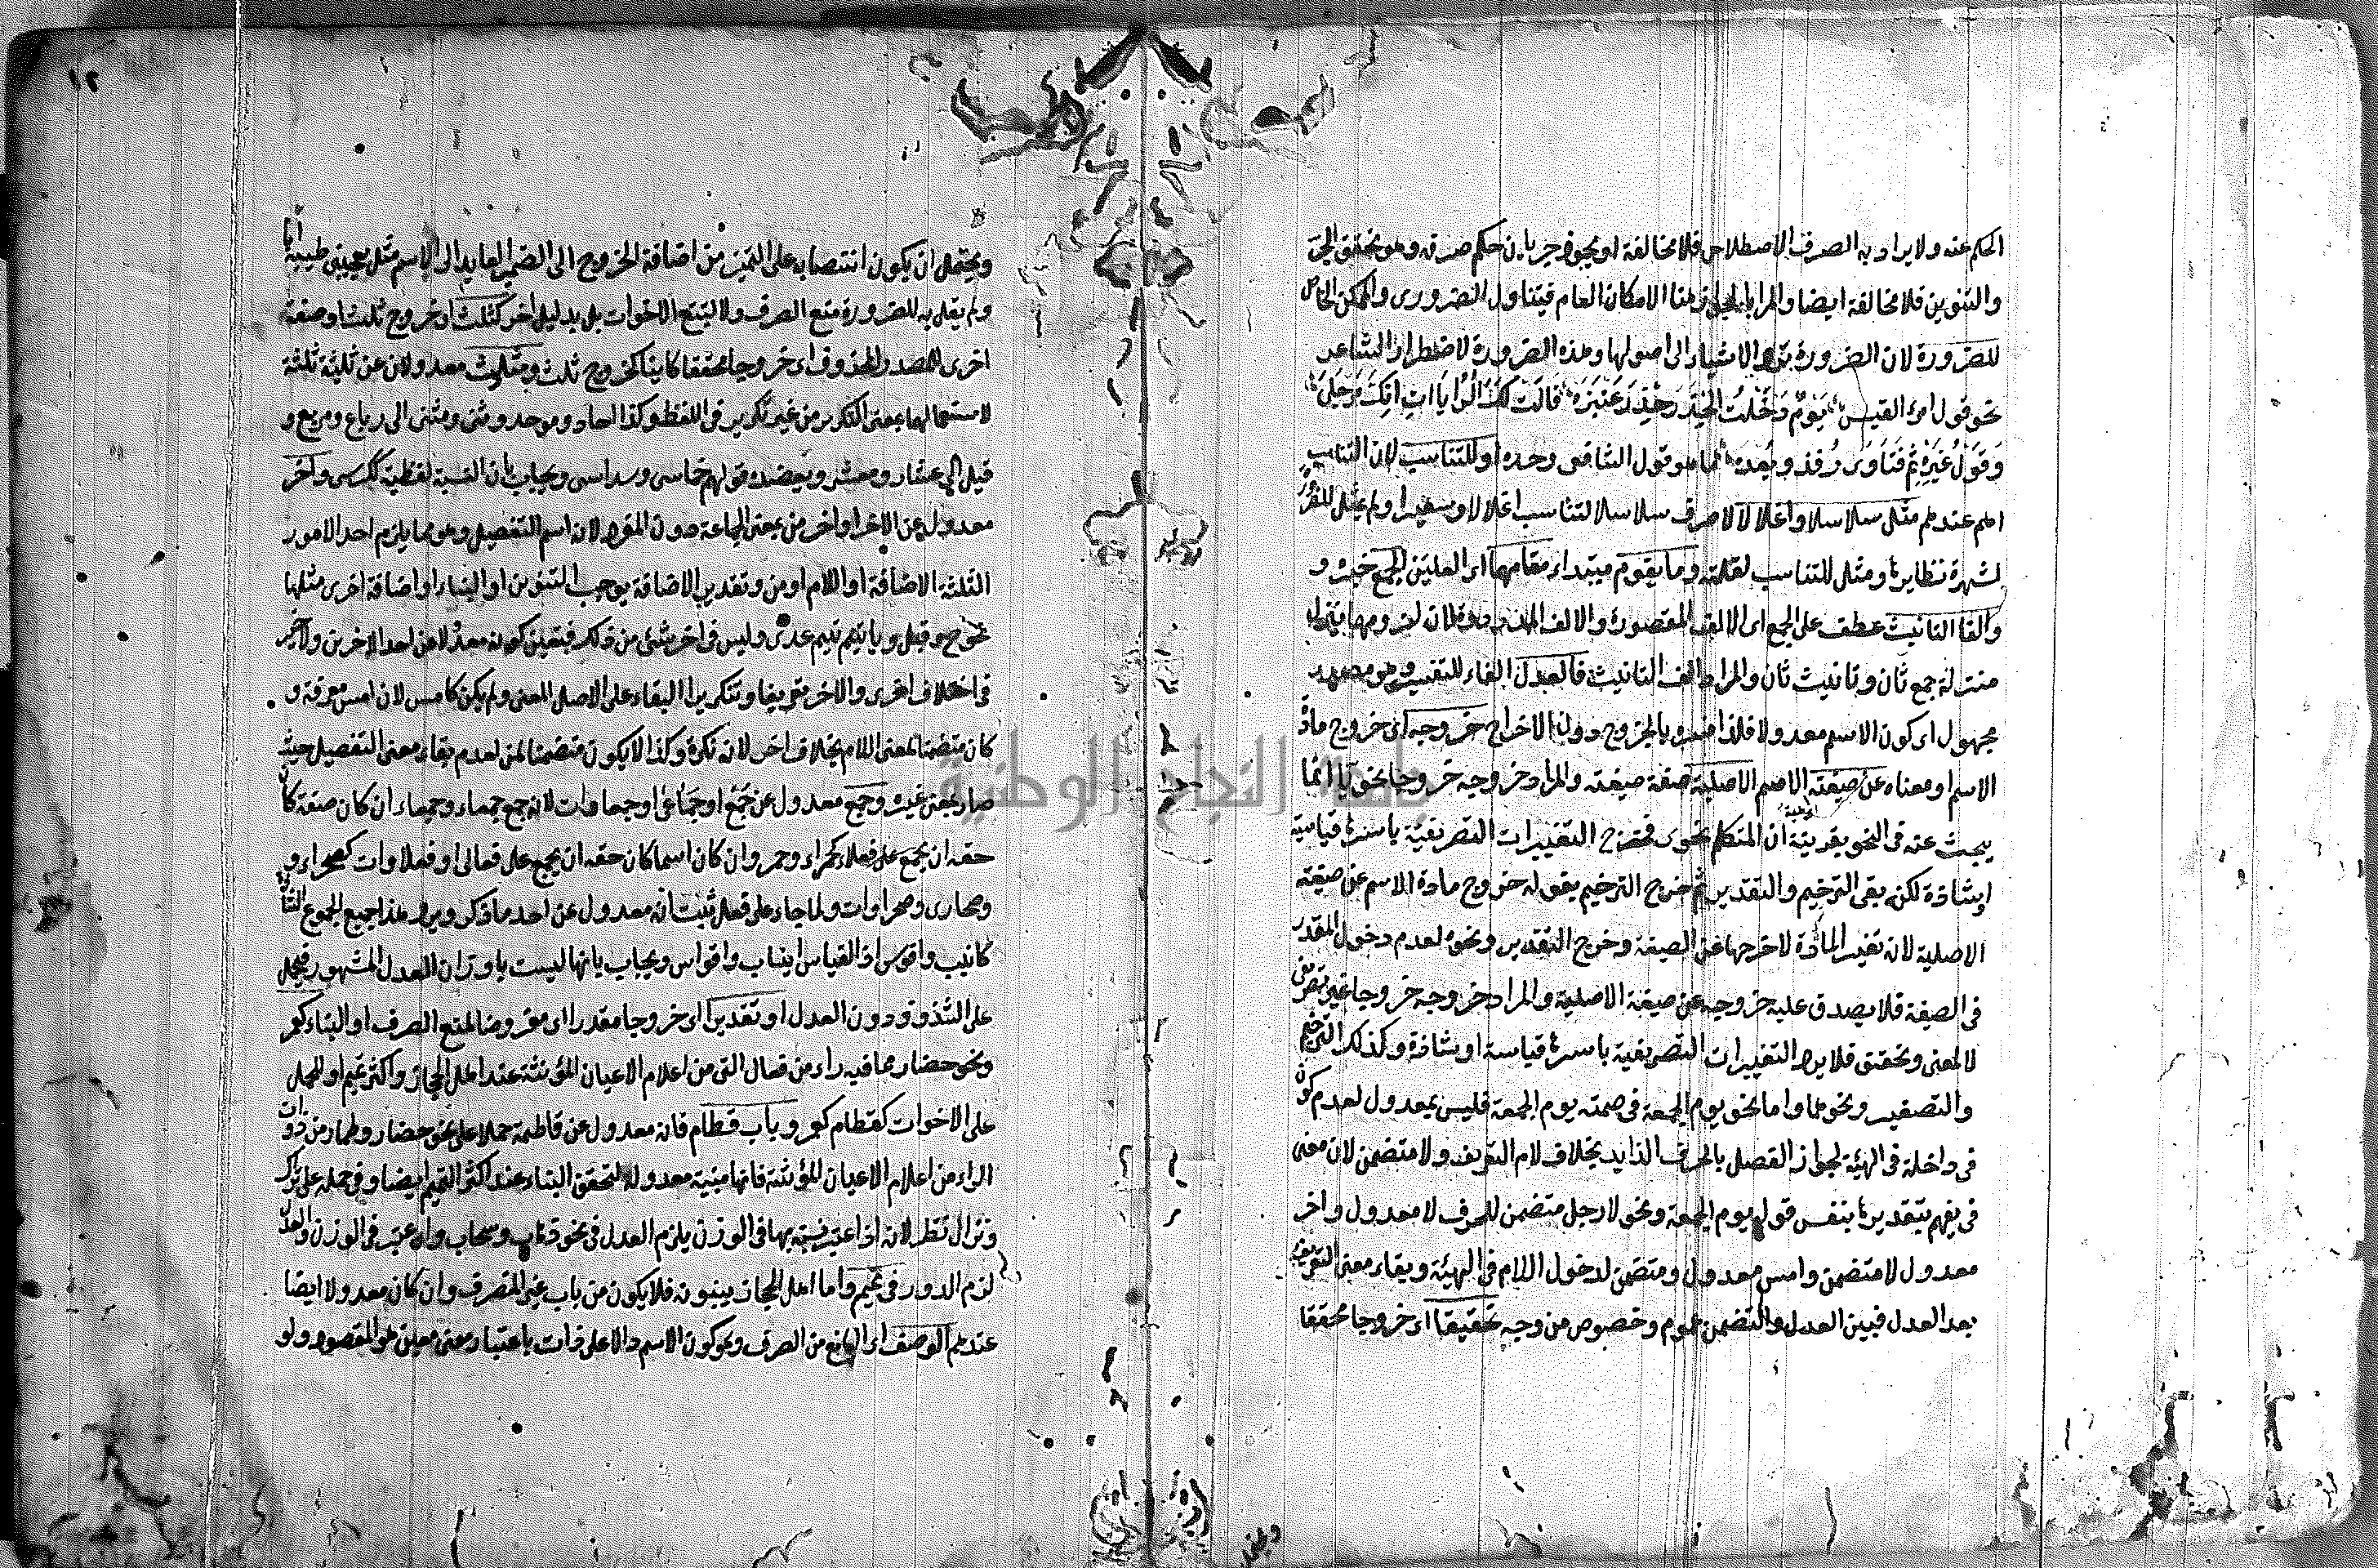 الحكم عنه ولا يراد به الصرف الاصطلاحي فلا مخالفة او يجوز جريان حكم صرفه وهو تحقق الجر
والتنوين فلا مخالفة ايضا والمراد بالجواز هنا الامكان العام فيتناول الضروري والممكن الخاص
للضرورة لان الضرورة ترد الاشياء الى اصولها وهذه الضرورة لاضطرار الشاعر
نحو قول امرئ القيس وَيَوْمَ دَخَلْتُ الخِدْرَ خِدْرَ عُنَيْزَة قالت لَكَ الْوَيْلَاتِ اِنَّكَ مُرْجِلِي
وقول غيره وحده او للتناسب لان التناسب
اهم عندهم مثل سلاسلا واغلالا لا صرف سلاسلا لتناسب اغلالا وسعيرا ولم يمثل للضرورة
لشهرة نظايرها ومثل للتناسب لقلته وما يقوم مبتداء مقامهما اى العلتين الجمع خبره و
والفا التانيث عطف على الجمع اى الالف المقصورة والالف الممدودة لان لزومها بمنزلة
منزلة جمع ثان وتانيث ثان والمراد الف التانيث فالعدل الفاء للتفسير وهو مصدر
مجهول اى كون الاسم معدولا فلذا فسر بالخروج دون الاخراج خروجه اى خروج مادة
الاسم او معناه عن صيغته الاصلية صفة صيغته والمراد خروجه خروجا نحويا انما
يبحث عنه فى النحو بقرينة ان المتكلم نحوى فخرج التغييرات التصريفية باسرها قياسية
او شاذة لكن بقى الترخيم والتقدير ثم خرج الترخيم بقوله خروج مادة الاسم عن صيغته
الاصلية لان تغير المادة لاخرجها عن الصيغة وخرج التقدير ونحوه لعدم دخول المقدر
فى الصيغة فلا يصدق عليه خروجه عن صيغة الاصلية والمراد خروجه خروجا غير
لا لمعنى وتحقق فلا يرد التغييرات التصريفية باسرها قياسة او شاذة وكذلك الترخيم
والتصغير ونحوهما واما نحو يوم الجمعة فى صمته يوم الجمعة فليس بمعدول لعدم كون
فى داخلة فى الهيئة لجواز الفصل بالحرف الزايد بخلاف لام التعريف ولا متضمن لان معنى
فى يفهم بتقديرها بنفس قوله يوم الجمعة ونحو لا رجل متضمن للحرف لا معدول واخر
معدول لا متضمن وامس معدول ومتضمن لدخول اللام فى الهيئة وبقاء معنى التعريف
بعد العدل فبين العدل والتضمن عموم وخصوص من وجه تحقيقا اى خروجا محققا
١٢
ويحتمل ان يكون انتصابه على التميز من اضافة الخروج الى الضمير العايد الى الاسم مثل يعجبنى طيبه ابا
ولم يقل به للضرورة منع الصرف ولا لتتبع الاخوات بل بدليل اخر كثلث او خروج ثلث او صفة
اخرى للمصدر المحذوف اى خروجا محققا كاينا كخروج ثلث ومثلث معدولان عن ثلثة ثلثة
لاستعمالهما بمعنى التكرر من غير تكرير فى اللفظ وكذا احاد وموحد وثنى ومثنى الى رباع ومربع و
قيل الى عشار ومعشر ويعضده قولهم خماسى وسداسى ويجاب بان النسبة لفظية ككرسى واخر
معدول عن الاخر او اخر من بمعنى الجماعة دون المفرد لانه اسم التفضيل وهو مما يلزم احد الامور
الثلثة الاضافة او اللام او من وتقدير الاضافة يوجب التنوين او البناء او اضافة اخرى مثلها
نحو ح وقبل ويا تيم تيم عدى وليس فى اخر شئ من ذلك فتعين كونه معدولا عن احد الاخرين ولا
فى اختلاف اخرى والاخر تعريفا وتنكيرا البقاء على الاصل المعنى ولم يكن كامس لان امس معرفة و
كان متضمنا لمعنى اللام بخلاف اخر لانه نكرة وكذا لا يكون متضمنا لمن لعدم بقاء معنى التفضيل حيث
صار بمعنى غير وجمع معدول عن جُمْع او جَمَاعَى او جمعاوات لانه جمع جمعاء وجمعاء ان كان صفة كان
حقه ان يجمع على فعلاء كحمراء وحمر وان كان اسما كان حقه ان يجمع على فعالى او فعلاوات كصحراء و
وصحارى وصحراوات ولما جاء على فعل ثبت انه معدول عن احد ما ذكر ويرد على هذا جميع الجموع الشاذة
كانيب واقوس اذ القياس انياب واقواس ويجاب بانها ليست باوزان العدل المشهور فيحمل
على الشذوذ دون العدل او تقديرا اى خروجا مقدرا اى مفروضا لمنع الصرف او البناء كعمر
ونحو حضار مما فيه راء من فعال التى من اعلام الاعيان المؤنثة عند اهل الحجاز واكثر تميم او للحمل
على الاخوات كقطام كعمر وباب قطام فانه معدول عن قاطمة حملا على نحو حضار وطمار من ذوات
الراء من اعلام الاعيان المؤنثة فانها مبنية معدولة لتحقق البناء عند اكثر التميم ايضا وفى حمله على تراك
ونزال نظر لانه اذا اعتبر فيه بها فى الوزن يلزم العدل فى نحو ذهاب وسحاب وان اعتبر فى الوزن والعدل
لزم الدور فى تميم واما اهل الحجاز يبنونه فلا يكون من باب غير المنصرف وان كان معدولا ايضا
عندهم الوصف اى المانع من الصرف وهو كون الاسم دالا على ذات باعتبار معنى معين هو المقصود ولو